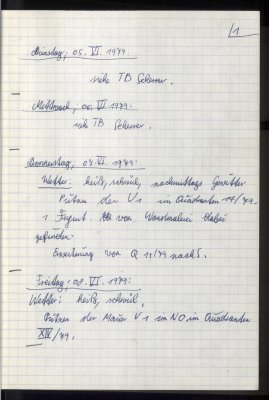 /1
Dienstag, 05. VI. 1979.
siehe TB Scherrer.
Mittwoch, 06. VI. 1979.
siehe TB Scherrer.
Donnerstag, 07. VI. 1979:
Wetter: heiß, schwül, nachmittags Gewitter.
Putzen der V1 im Quadranten 17/79.
1 Fragment von Wandmalerei dabei
gefunden.
Erweiterung von Q 17/79 nach S.
Freitag, 08. VI. 1979:
Wetter: heiß, schwül,
Putzen der Mauer V1 im NO im Quadranten
XIV/79.